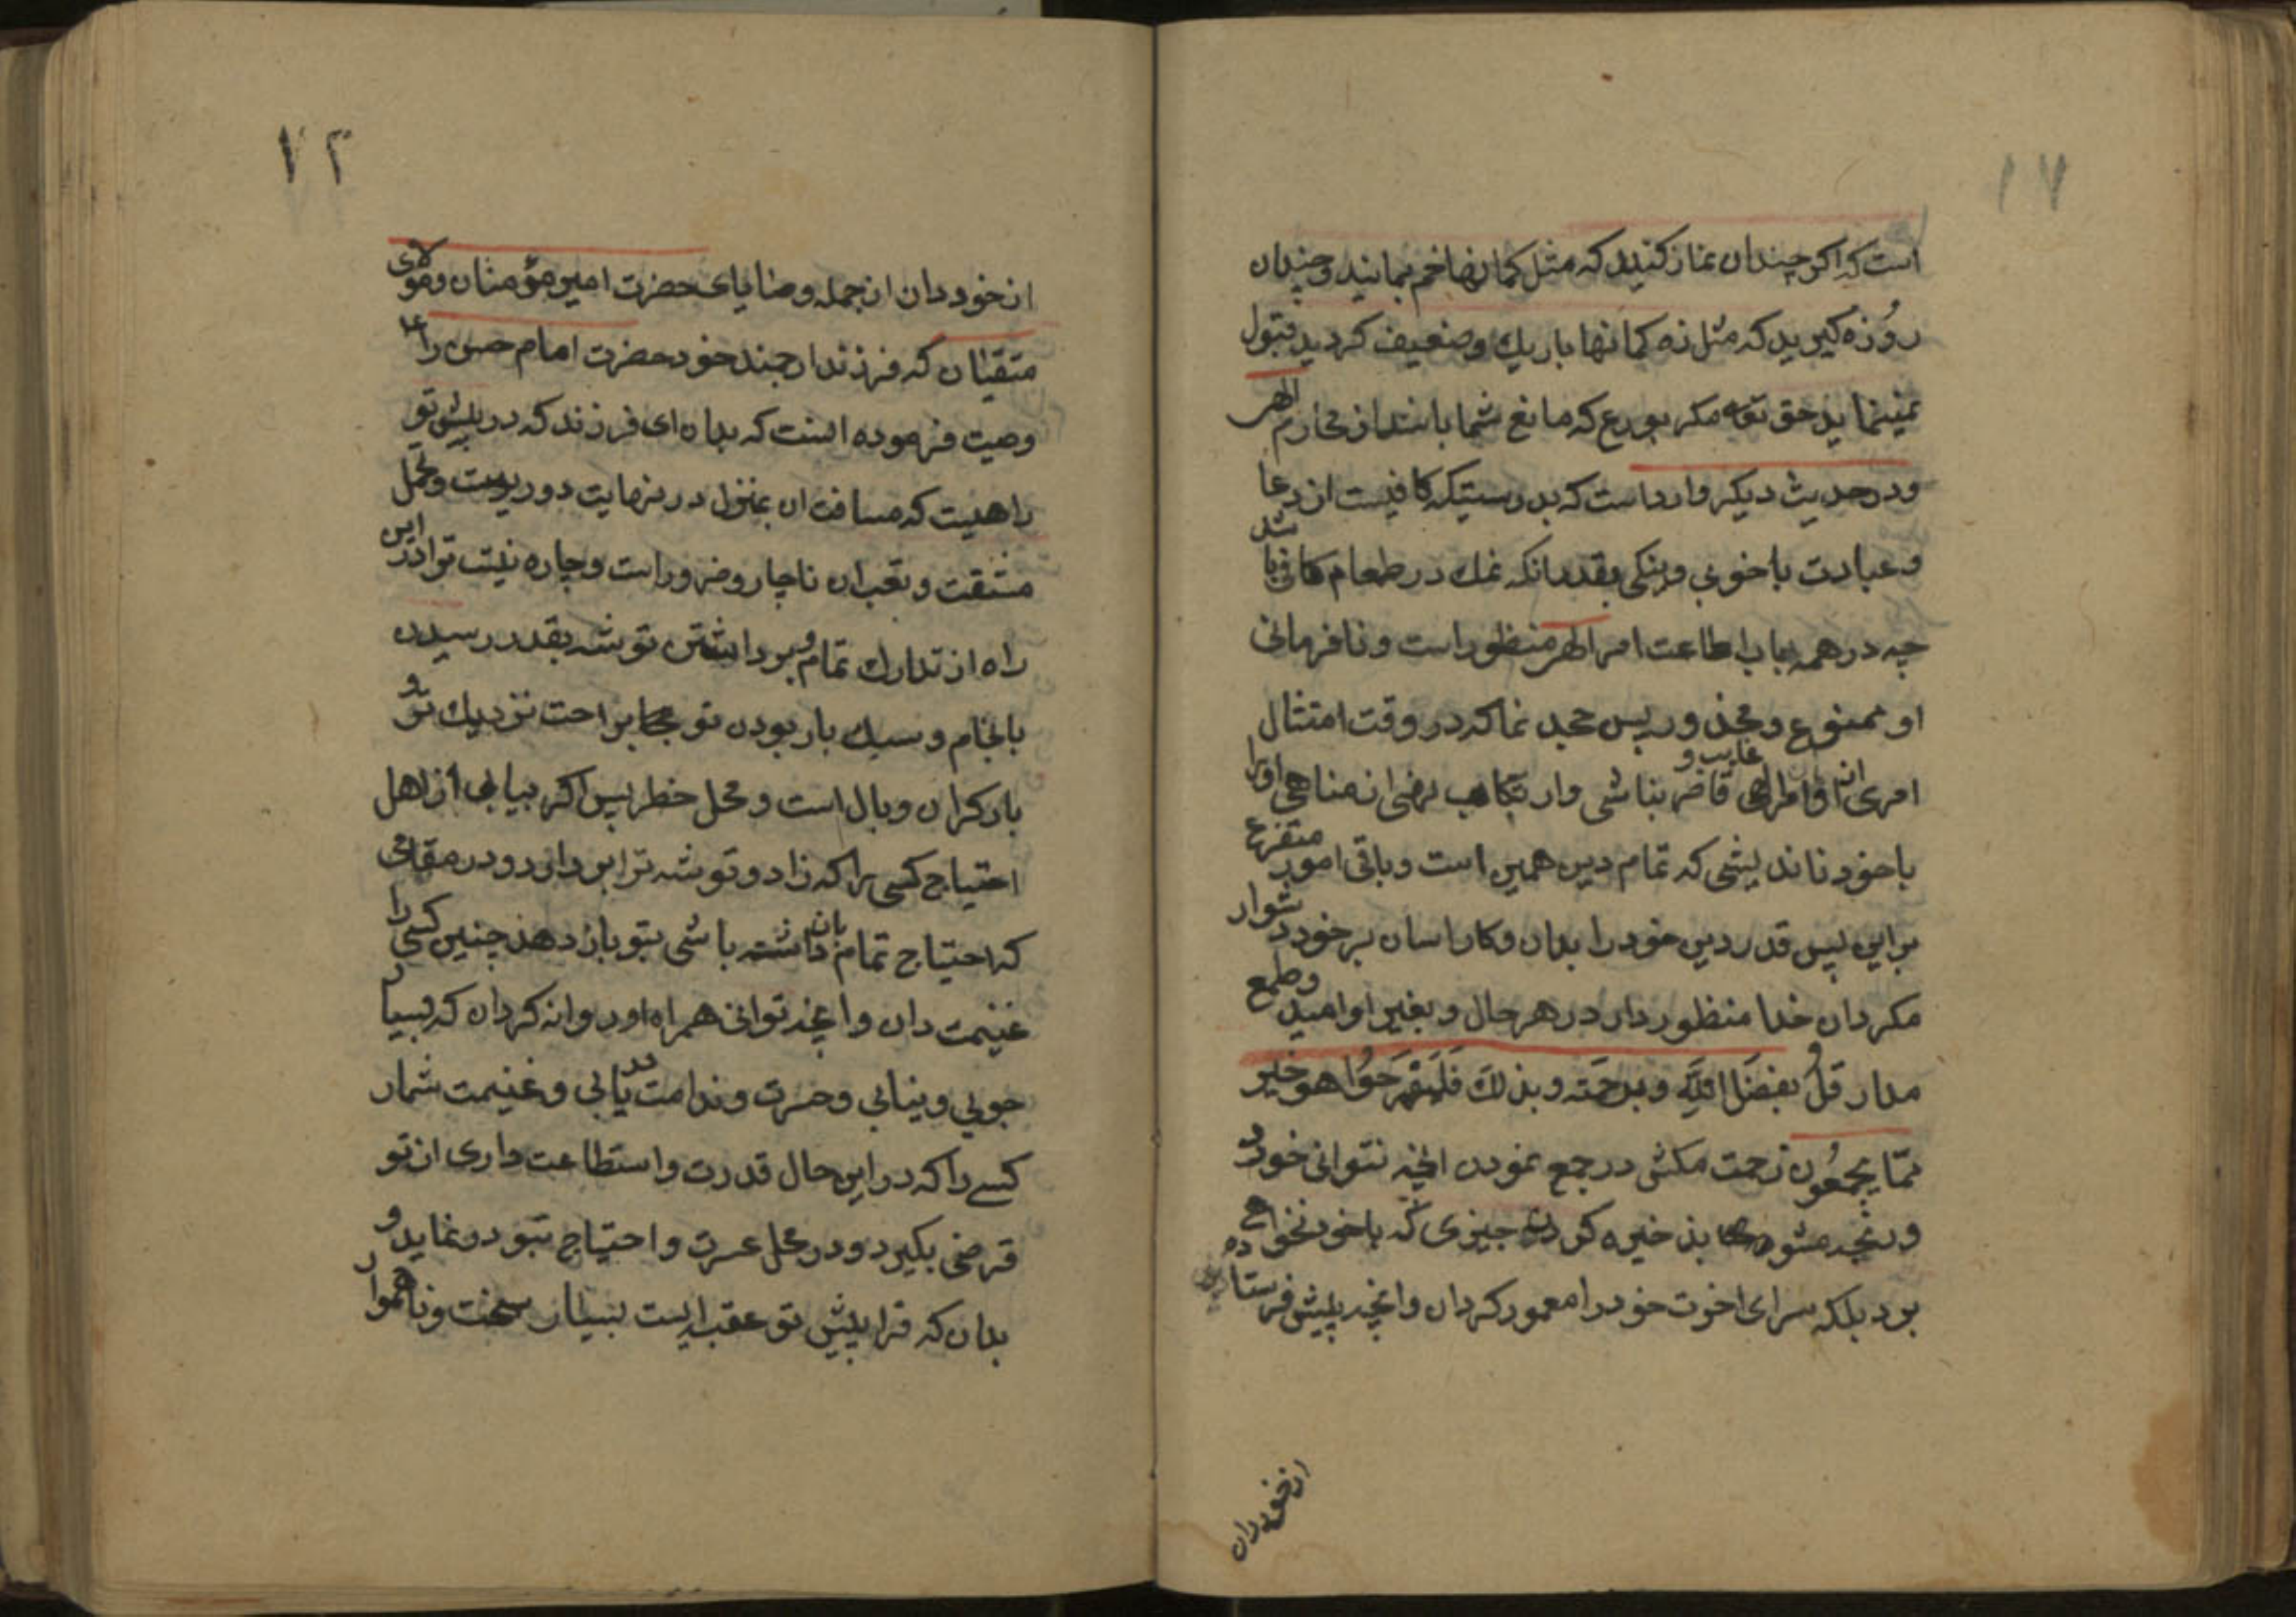 ۱۷
است که اکر چندان نماز کنید که مثل کمانها خم بمانید و چندان
روزه کیرید که مثل زه کمانها باریک و ضعیف کردید قبول
نمینماید حق تعه مکر بورع که مانع شما باشد از محارم الهی
و در حدیث دیکر وارد است که بدرستیکه کافیست از دعا
و عبادت با خوبی و نیکی بقدر انکه نمک در طعام کافی باشد
چه در همه باب اطاعت امر الهی منظور است و نافرمانی
او ممنوع و محذور پس جهد نما که در وقت امتثال
امری از اوامر الهی غایب و قاصر نباشی و ارتکاب نهی از مناهی اورا
با خود ناندیشی که تمام دین همین است و باقی امور متفرع
براین پس قدر دین خود را بدان و کار اسان بر خود دشوار
مکردان خدا منظور دار در هر حال و بغیر او امید و طمع
مدار قل بفضل الله و برحمته و بذلک فلیفرحوا هو خیر
مما یجمعون زحمت مکش در جمع نمودن انچه نتوانی خورد
و رنجه مشو بذخیره کردن چیزی که با خود نخواهی
بود بلکه سرای اخرت خود را معمور کردان و انچه پیش فرستاده
از خود دان
۷۲
از خود دان از جمله وصایای حضرت امیر مؤمنان و مولای
متقیان که فرزند ارجمند خود حضرت امام حسن را ع
وصیت فرموده است که بدان ای فرزند که در پیش تو
راهیست که مسافت ان بمنزل در نهایت دوریست و تحمل
مشقت و تعب ان ناچار و ضرور است و چاره نیست ترا در این
راه از تدارک تمام و برداشتن توشه بقدر رسیدن
بانجام و سبک بار بودن تو براحت نزدیک تر و
بار کران وبال است و محل خطر پس اکر بیابی از اهل
احتیاج کسی را که زاد و توشه ترا بردارد و در مقامی
که احتیاج تمام بان داشته باشی بتو باز دهد چنین کسی را
غنیمت دان و انچه توانی همراه او روانه کردان که بسیار
جویی و نیابی و حسرت و ندامت یابی و غنیمت شمار
کسے را که در این حال قدرت و استطاعت داری از تو
قرضی بکیرد و در محل عسرت و احتیاج بتو رد نماید و
بدان که ترا پیش تو عقبه ایست بسیار سخت و ناهموار